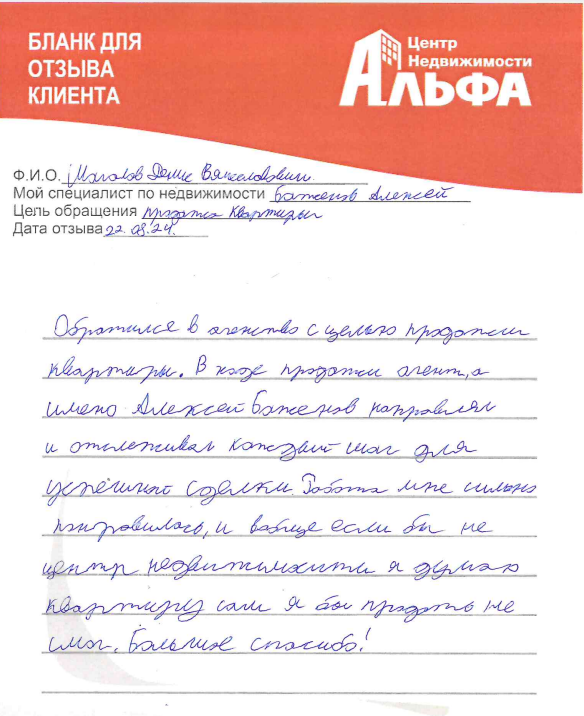 БЛАНК ДЛЯ
ОТЗЫВА
КЛИЕНТА
Центр
Недвижимости
АЛЬФА
Ф.И.О. Денис Вячеславович
Мой специалист по недвижимости Баженов Алексей
Цель обращения продажа квартиры
Дата отзыва 22.08.24.
Обратился в агенство с целью продажи
квартиры. В ходе продажи агент, а
имено Алексей Баженов направлял
и отслеживал каждый шаг для
успешной сделки. Работа мне сильно
понравилась, и вобще если бы не
центр недвижимости я думаю
квартиру сам я бы продать не
смог. Большое спасибо!